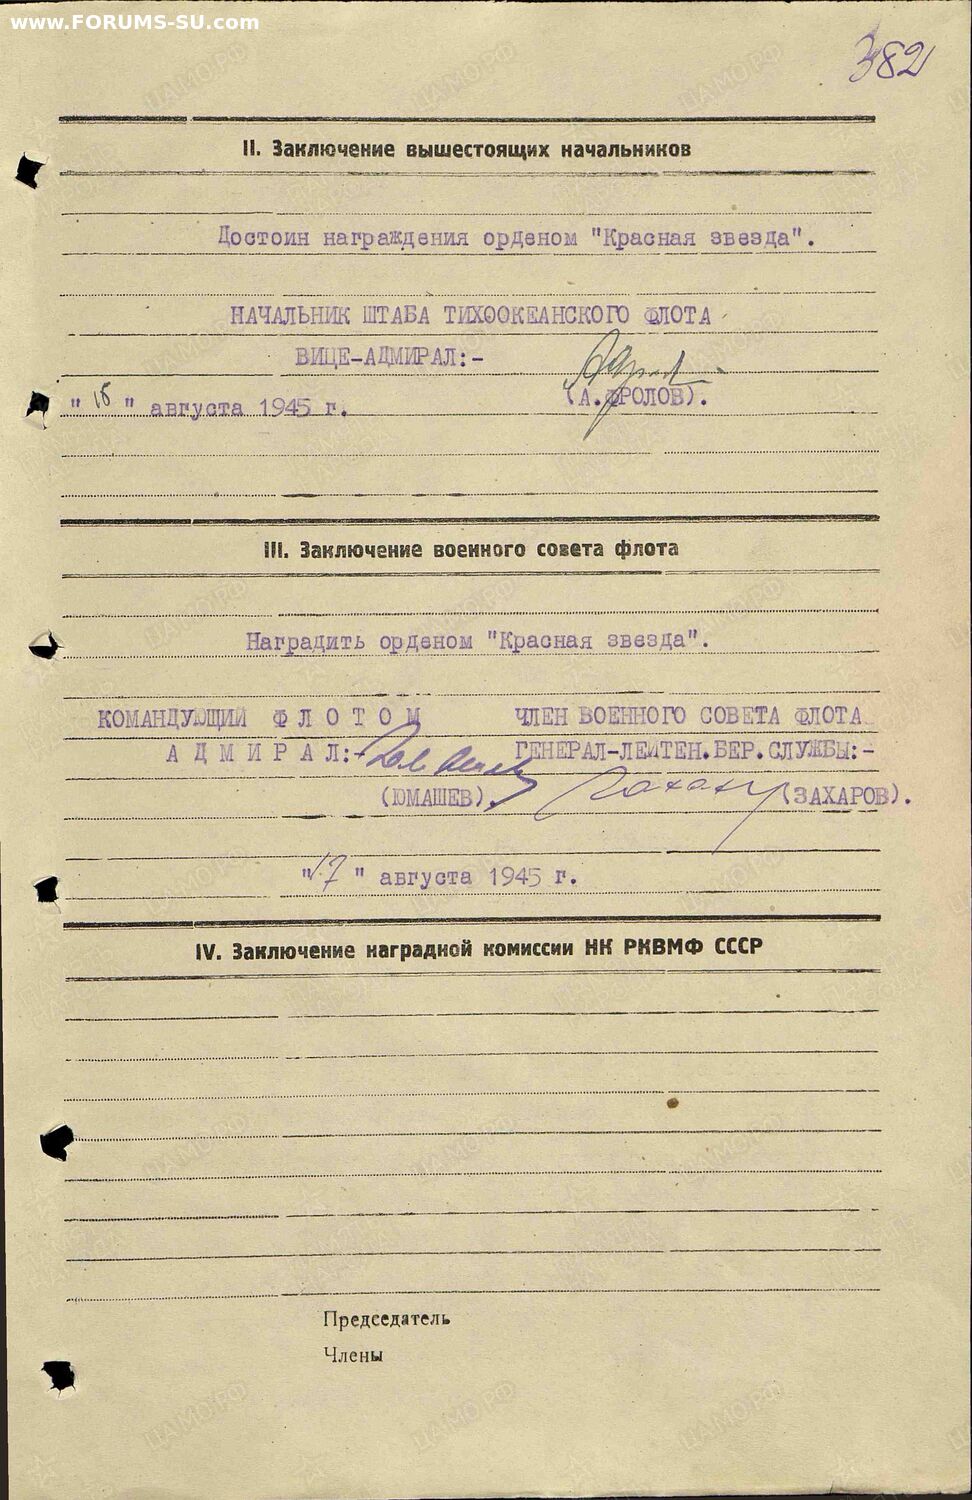 www.FORUMS-SU.com
382
II. Заключение вышестоящих начальников
Достоин награждения орденом "Красная звезда".
НАЧАЛЬНИК ШТАБА ТИХООКЕАНСКОГО ФЛОТА
ВИЦЕ-АДМИРАЛ:-
(А.ФРОЛОВ).
" " августа 1945 г.
III. Заключение военного совета флота
Наградить орденом "Красная звезда".
КОМАНДУЮЩИЙ Ф Л О Т О М ЧЛЕН ВОЕННОГО СОВЕТА ФЛОТА
А Д М И Р А Л:- ГЕНЕРАЛ-ЛЕЙТЕН.БЕР.СЛУЖБЫ:-
(ЮМАШЕВ). (ЗАХАРОВ).
"17" августа 1945 г.
IV. Заключение наградной комиссии НК РКВМФ СССР
Председатель
Члены